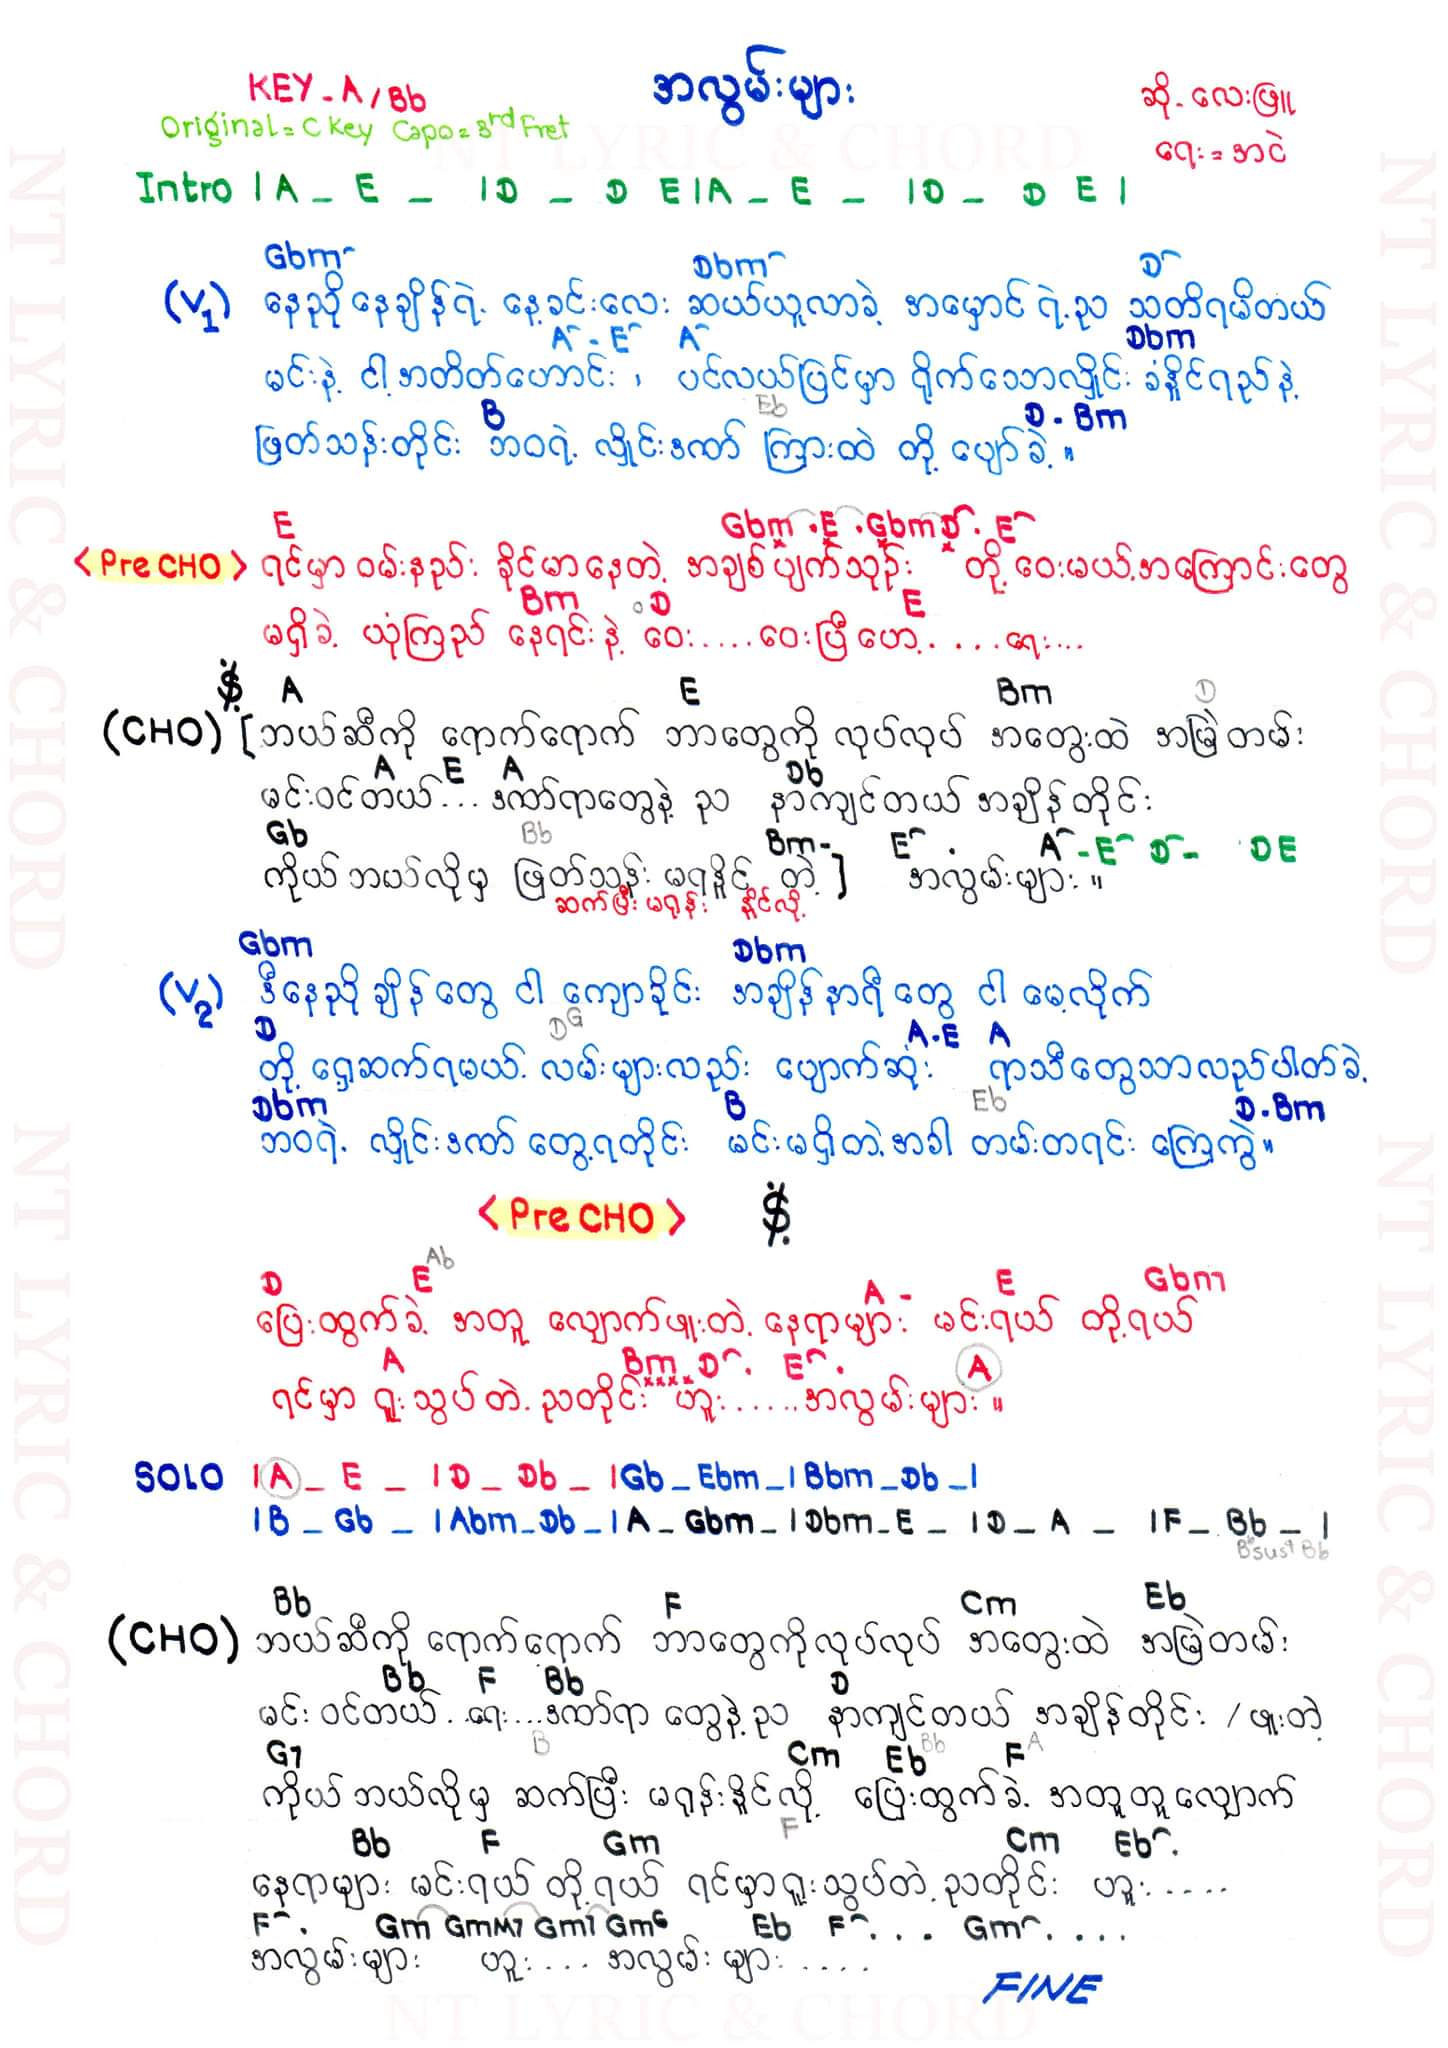 KEY - A / Bb
အလွမ်းများ
ဆို - လေးဖြူ
Original = C Key Capo = 3rd Fret
ရေး = အငဲ
Intro | A _ E _ | D _ D E | A _ E _ | D _ D E |
Gbm Dbm D
(V1) နေညိုနေချိန်ရဲ့ နေ့ခင်းလေး ဆယ်ယူလာခဲ့ အမှောင်ရဲ့ည သတိရမိတယ်
A - E A Dbm
မင်းနဲ့ ငါ့အတိတ်ဟောင်း ၊ ပင်လယ်ပြင်မှာ ရိုက်သောလှိုင်း ခံနိုင်ရည်နဲ့
B Eb D . Bm
ဖြတ်သန်းတိုင်း ဘဝရဲ့ လှိုင်းဒဏ် ကြားထဲ တို့ ပျော်ခဲ့ ။
E Gbm . E . Gbm D . E
< Pre CHO > ရင်မှာ ဝမ်းနည်း ခိုင်မာနေတဲ့ အချစ်ပျက်သုဉ်း တို့ ဝေးမယ့်အကြောင်းတွေ
Bm D E
မရှိခဲ့ ယုံကြည် နေရင်းနဲ့ ဝေး..... ဝေးပြီဟေ့..... ရေး...
A E Bm D
(CHO) [ ဘယ်ဆီကို ရောက်ရောက် ဘာတွေကို လုပ်လုပ် အတွေးထဲ အမြဲတမ်း
A E A Db
မင်းဝင်တယ်... ဒဏ်ရာတွေနဲ့ ည နာကျင်တယ် အချိန်တိုင်း
Gb Bb Bm - E . A - E D - D E
ကိုယ်ဘယ်လိုမှ ဖြတ်သန်း မရနိုင် တဲ့ ] အလွမ်းများ ။
ဆက်ပြီး မရုန်း နိုင်လို့
Gbm Dbm
(V2) ဒီနေညိုချိန်တွေ ငါ ကျောခိုင်း အချိန်နာရီတွေ ငါ မေ့လိုက်
D DG A . E A
တို့ ရှေ့ဆက်ရမယ့် လမ်းများလည်း ပျောက်ဆုံး ရာသီတွေသာလည်ပါတ်ခဲ့
Dbm B Eb D . Bm
ဘဝရဲ့ လှိုင်းဒဏ် တွေ့ရတိုင်း မင်းမရှိတဲ့အခါ တမ်းတရင်း ကြေကွဲ ။
< Pre CHO >
D E Ab A - E Gbm
ပြေးထွက်ခဲ့ အတူ လျှောက်ဖူးတဲ့ နေရာများ မင်းရယ် တို့ရယ်
A Bm D . E . A
ရင်မှာ ရူးသွပ်တဲ့ ညတိုင်း ဟူး..... အလွမ်းများ ။
SOLO | A _ E _ | D _ Db _ | Gb _ Ebm _ | Bbm _ Db _ |
| B _ Gb _ | Abm _ Db _ | A _ Gbm _ | Dbm _ E _ | D _ A _ | F _ Bb _ |
Bbsus4 Bb
Bb F Cm Eb
(CHO) ဘယ်ဆီကို ရောက်ရောက် ဘာတွေကိုလုပ်လုပ် အတွေးထဲ အမြဲတမ်း
Bb F Bb D
မင်းဝင်တယ်.. ရေး... ဒဏ်ရာ တွေနဲ့ည နာကျင်တယ် အချိန်တိုင်း / ဖူးတဲ့
G7 B Cm Eb Bb F A
ကိုယ်ဘယ်လိုမှ ဆက်ပြီး မရုန်းနိုင်လို့ ပြေးထွက်ခဲ့ အတူတူလျှောက်
Bb F Gm F Cm Eb .
နေရာများ မင်းရယ် တို့ရယ် ရင်မှာရူးသွပ်တဲ့ ညတိုင်း ဟူး.....
F . Gm GmM7 Gm7 Gm6 Eb F . . . Gm . . . .
အလွမ်းများ ဟူး.... အလွမ်းများ .....
FINE
NT LYRIC & CHORD
NT LYRIC & CHORD
NT LYRIC & CHORD
NT LYRIC & CHORD
NT LYRIC & CHORD
NT LYRIC & CHORD